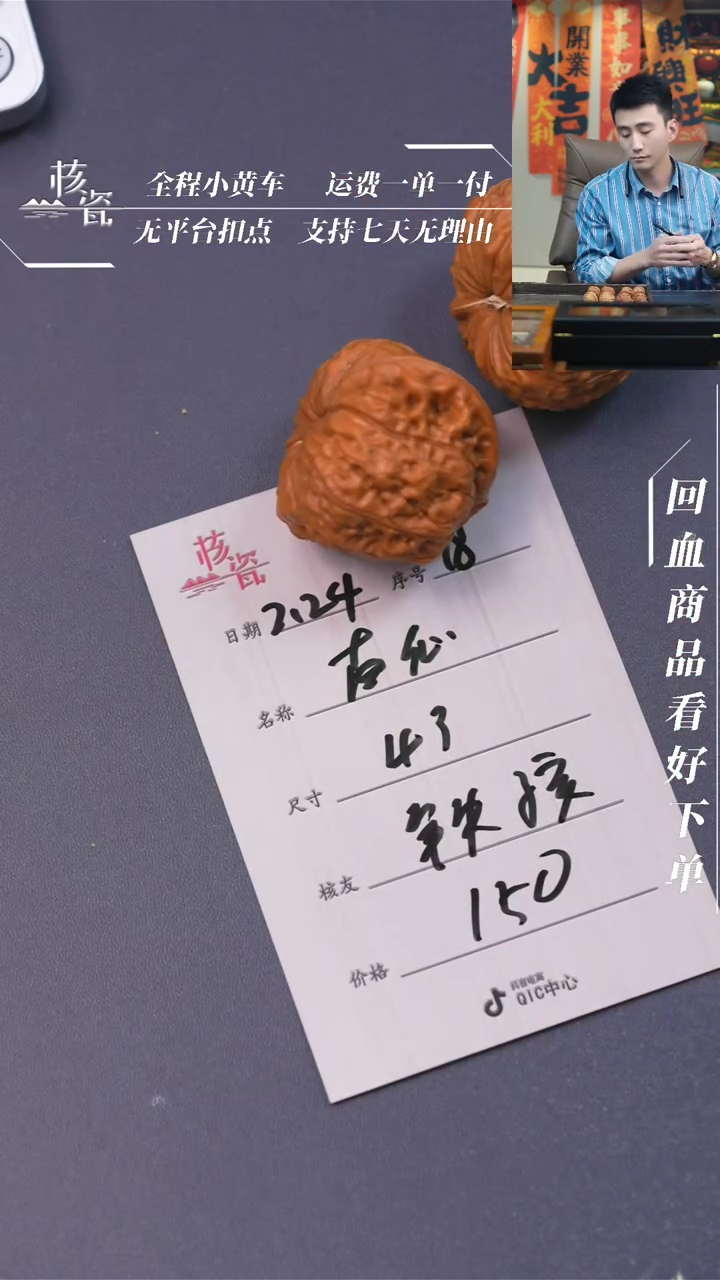 核瓷
全程小黄车 运费一单一付
无平台扣点 支持七天无理由
開業
大吉
大利
事事如
財興旺
回血商品看好下单
核瓷
日期 2.24 序号 18
名称
尺寸 43
核友 铁孩
价格 150
抖音电商
QIC中心